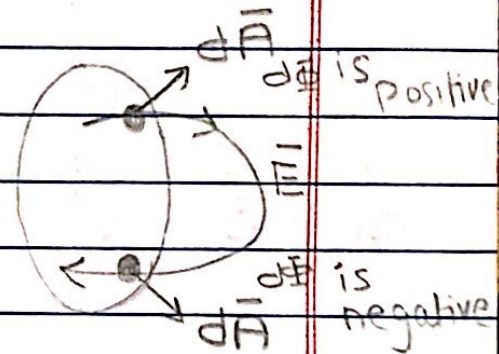 dA̅
dΦ is positive
E̅
dΦ is negative
dA̅